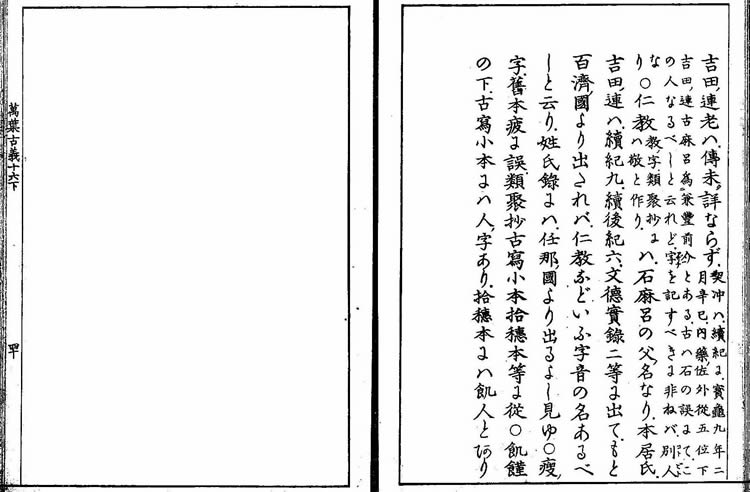 吉田連老ハ傳未詳ならず、契沖ハ續紀に寶龜九年二
月辛巳、內藥佐外從五位下
吉田連古麻呂爲兼豐前介とある、古ハ石の誤にて、こ
の人なるべしと云れど、字を記すべきに非ねバ、別人
な
り、○仁教教字類聚抄に
ハ敬と作り、ハ石麻呂の父名なり、本居氏、
吉田連ハ、續紀九、續後紀六、文德實錄二等に出て、もと
百濟國より出されバ、仁教などいふ字音の名あるべ
しと云り、姓氏錄にハ、任那國より出るよし見ゆ○瘦
字、舊本疲に誤、類聚抄古寫小本拾穗本等に從○飢饉
の下、古寫小本にハ人字あり、拾穗本にハ飢人とあり
萬葉古義十六下
四十